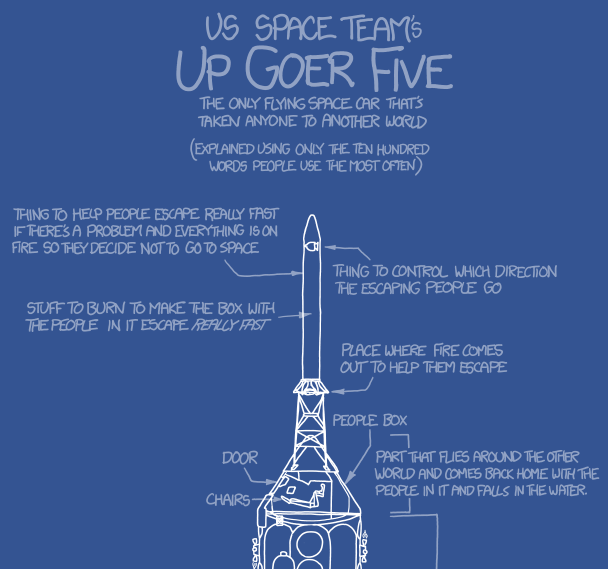 US SPACE TEAM'S
UP GOER FIVE
THE ONLY FLYING SPACE CAR THAT'S
TAKEN ANYONE TO ANOTHER WORLD
(EXPLAINED USING ONLY THE TEN HUNDRED
WORDS PEOPLE USE THE MOST OFTEN)
THING TO HELP PEOPLE ESCAPE REALLY FAST
IF THERE'S A PROBLEM AND EVERYTHING IS ON
FIRE SO THEY DECIDE NOT TO GO TO SPACE
THING TO CONTROL WHICH DIRECTION
THE ESCAPING PEOPLE GO
STUFF TO BURN TO MAKE THE BOX WITH
THE PEOPLE IN IT ESCAPE REALLY FAST
PLACE WHERE FIRE COMES
OUT TO HELP THEM ESCAPE
PEOPLE BOX
DOOR
CHAIRS
PART THAT FLIES AROUND THE OTHER
WORLD AND COMES BACK HOME WITH THE
PEOPLE IN IT AND FALLS IN THE WATER.